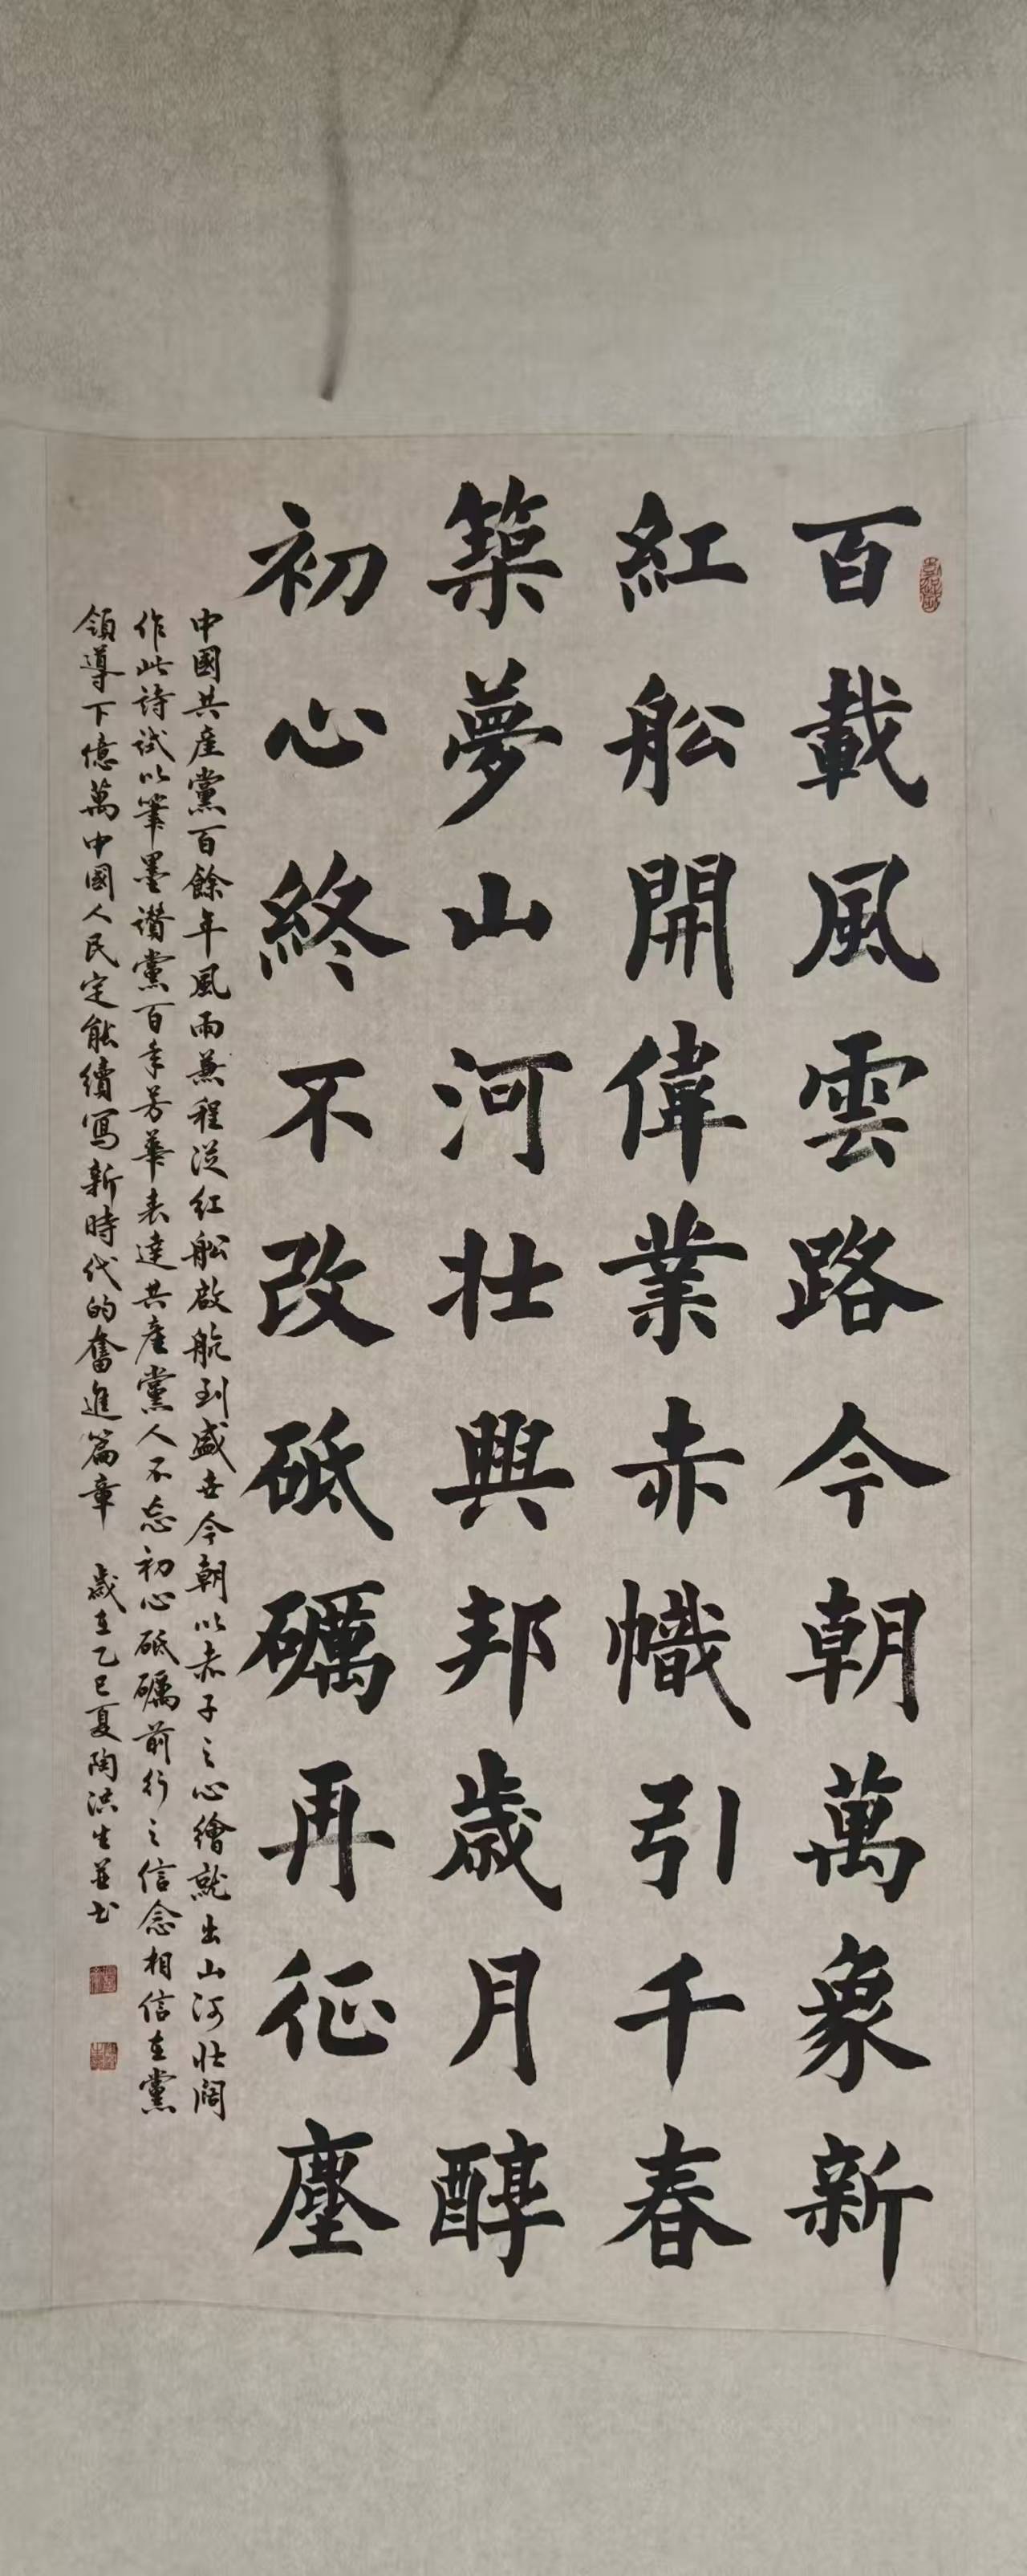 百載風雲路今朝萬象新
紅舩開偉業赤幟引千春
築夢山河壯興邦歲月醇
初心終不改砥礪再征塵
中國共產黨百餘年風雨兼程從紅舩啟航到盛世今朝以赤子之心繪就出山河壯闊
作此詩試以筆墨讚黨百年芳華表達共產黨人不忘初心砥礪前行之信念相信在黨
領導下億萬中國人民定能續寫新時代的奮進篇章 歲在乙巳夏陶洪生並书